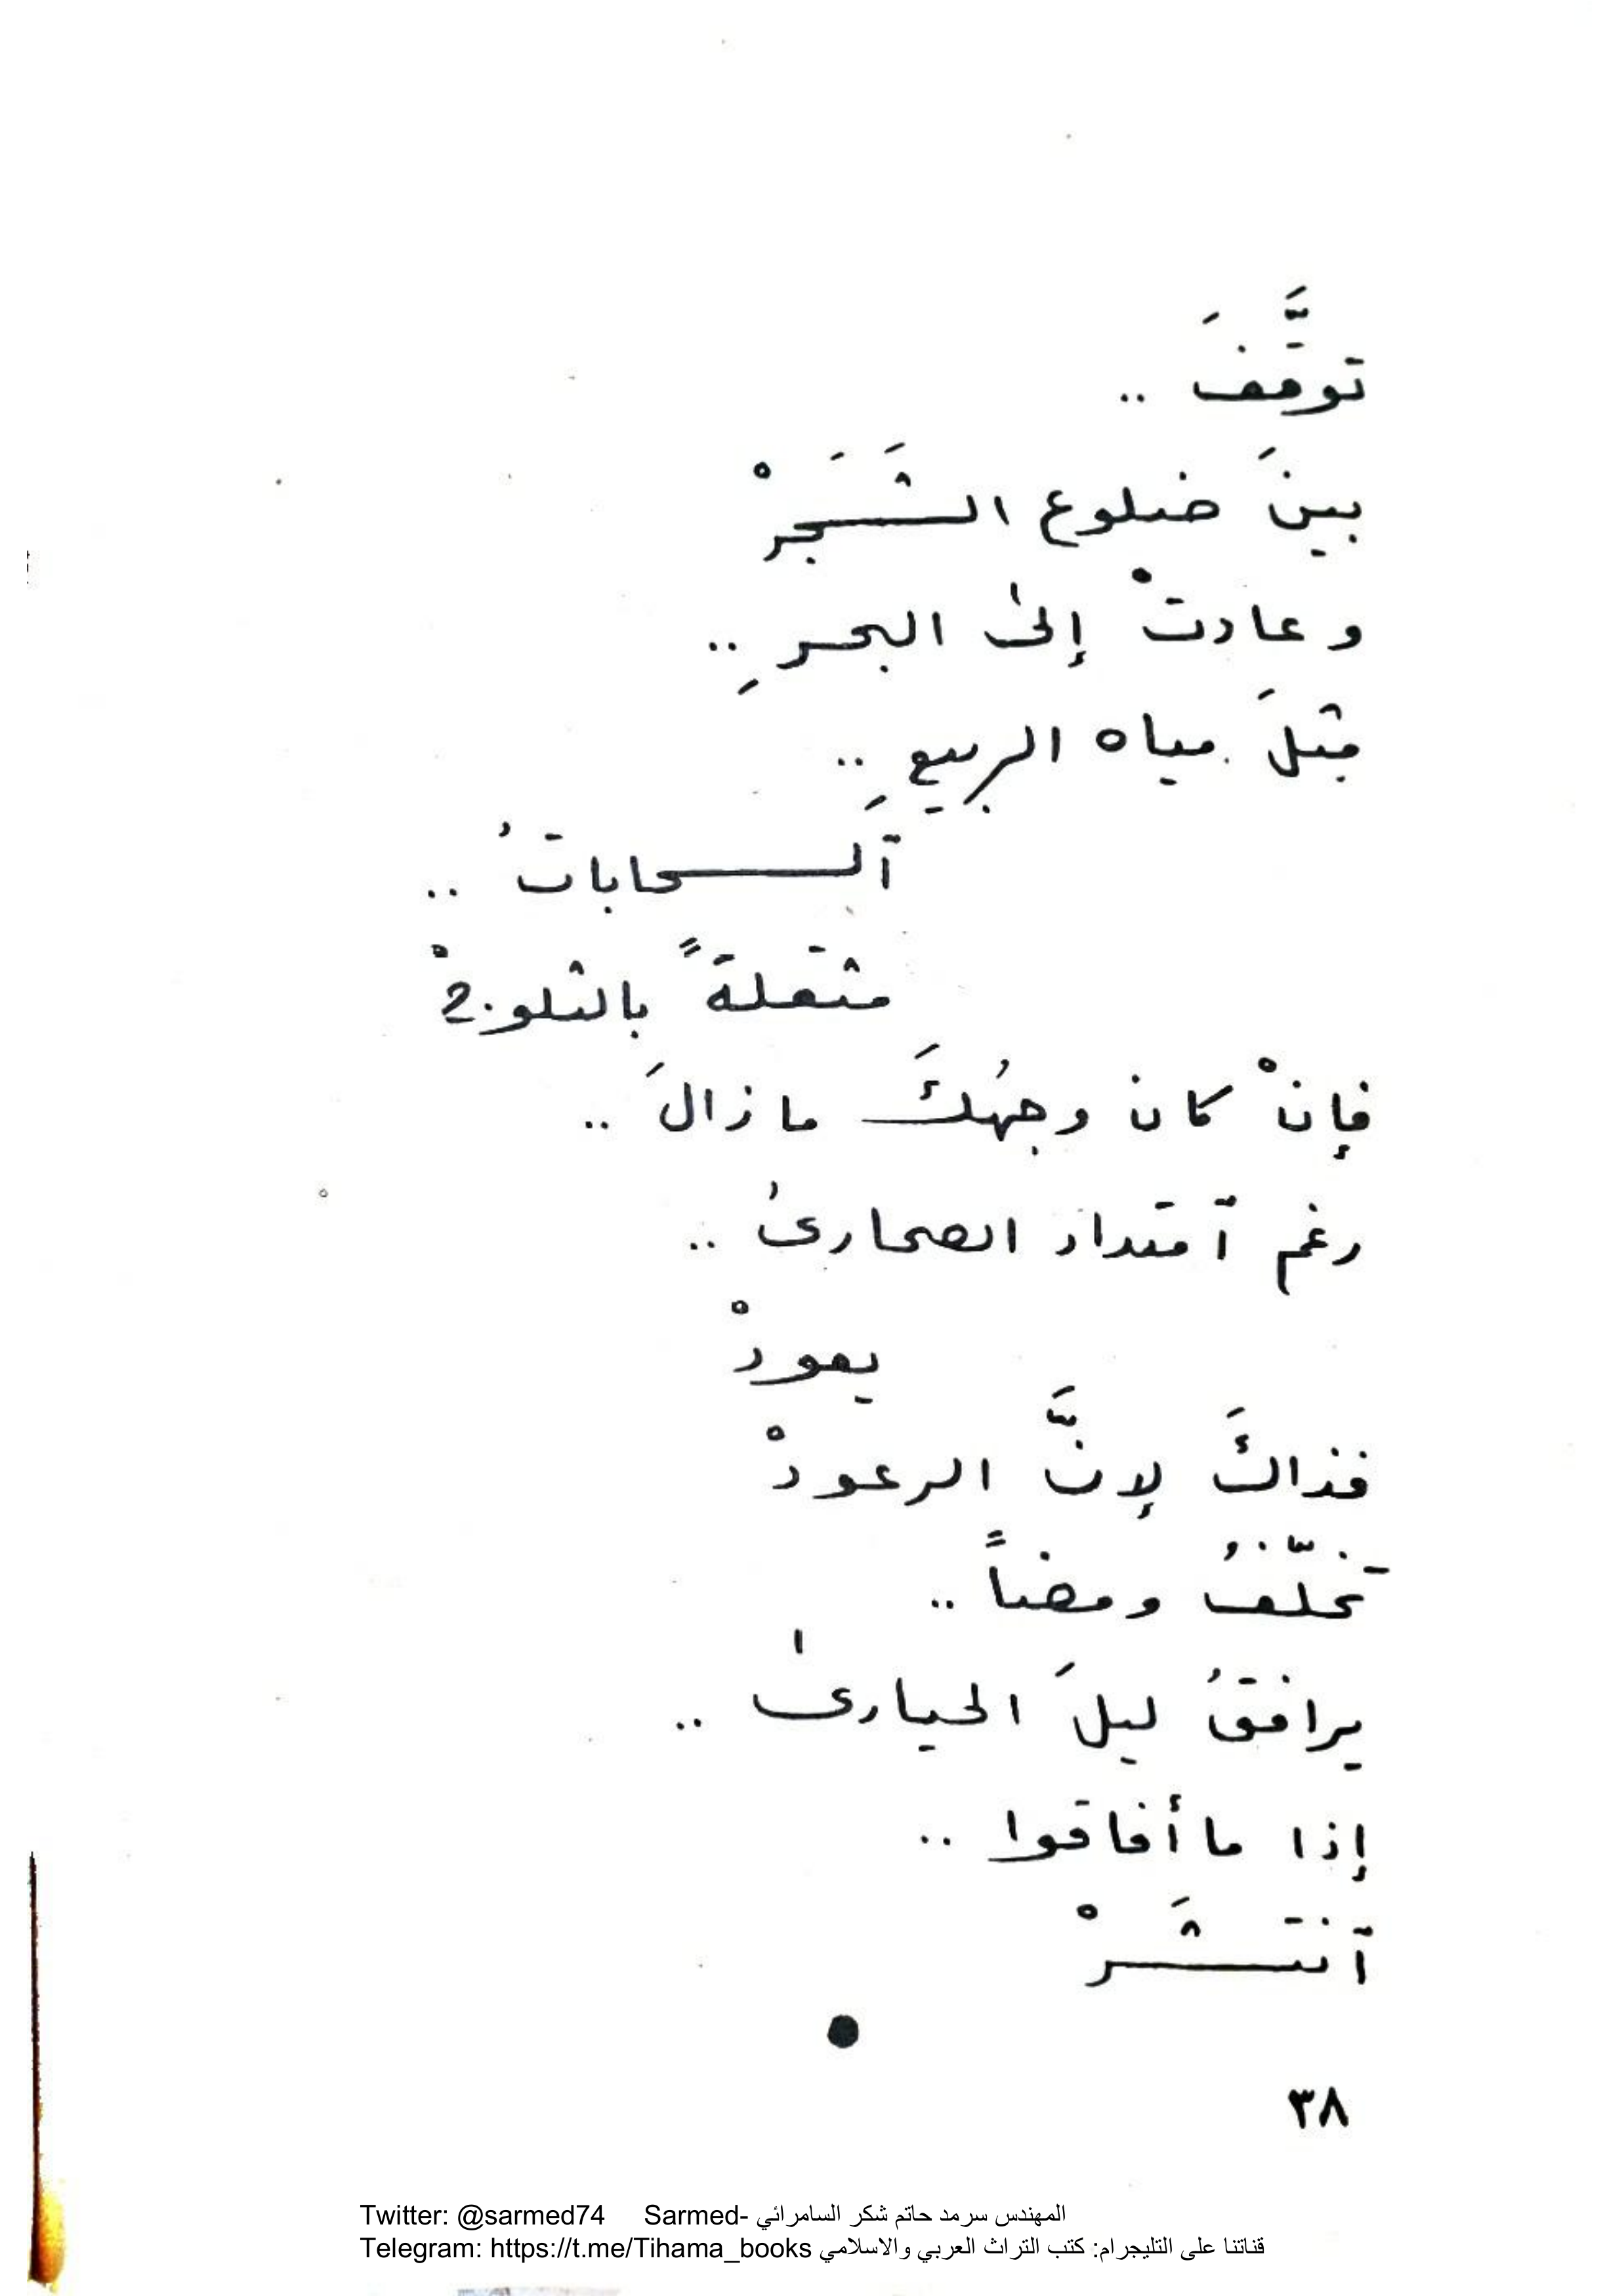 توقَّفَ ..
بينَ ضلوع الشَجَرْ
وعادتْ إلىٰ البحرِ ..
مثلَ مياه الربيعِ ..
آلسحاباتُ ..
مثقلةً بالثلوجْ
فإنْ كان وجهُكَ ما زالَ ..
رغم آمتداد الصحارىٰ ..
يعودْ
فذاكَ لإنَّ الرعودْ
تخلّفُ ومضاً ..
يرافقُ ليلَ الحيارىٰ ..
إذا ما أفاقوا ..
آنتشَرْ
٣٨
Twitter: @sarmed74 Sarmed- المهندس سرمد حاتم شكر السامرائي
Telegram: https://t.me/Tihama_books قناتنا على التليجرام: كتب التراث العربي والاسلامي